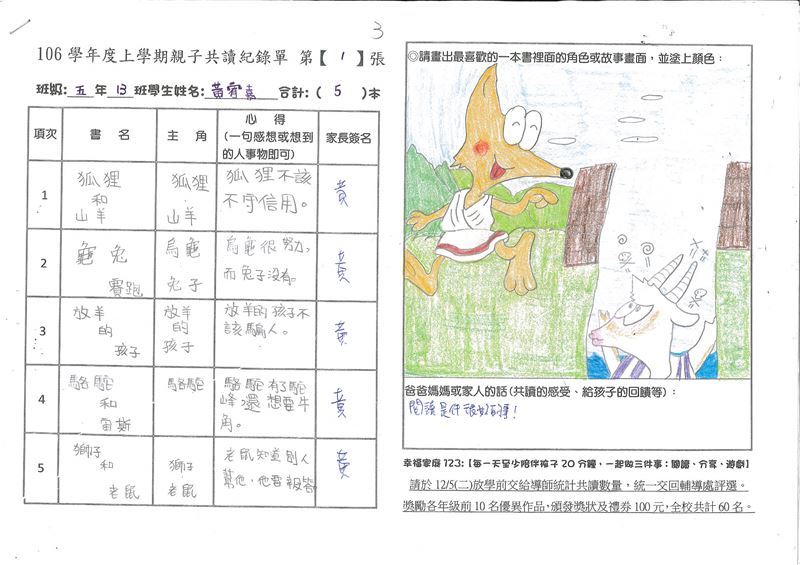 3
106 學年度上學期親子共讀紀錄單 第【1】張
班級:五年13班學生姓名:黃宥嘉 合計:(5)本
項次 書名 主角 心得(一句感想或想到的人事物即可) 家長簽名
1 狐狸和山羊 狐狸 山羊 狐狸不該不守信用。 黃
2 龜兔賽跑 烏龜 兔子 烏龜很努力,而兔子沒有。 黃
3 放羊的孩子 放羊的孩子 放羊的孩子不該騙人。 黃
4 駱駝和宙斯 駱駝 駱駝有了駝峰還想要牛角。 黃
5 獅仔和老鼠 獅仔 老鼠 老鼠知道別人幫他,他會報答 黃
◎請畫出最喜歡的一本書裡面的角色或故事畫面,並塗上顏色:
爸爸媽媽或家人的話(共讀的感受、給孩子的回饋等):
閱讀是件很好的事!
幸福家庭 123:【每一天至少陪伴孩子 20 分鐘,一起做三件事:閱讀、分享、遊戲】
請於 12/5(二)放學前交給導師統計共讀數量,統一交回輔導處評選。
獎勵各年級前 10 名優異作品,頒發獎狀及禮券 100 元,全校共計 60 名。